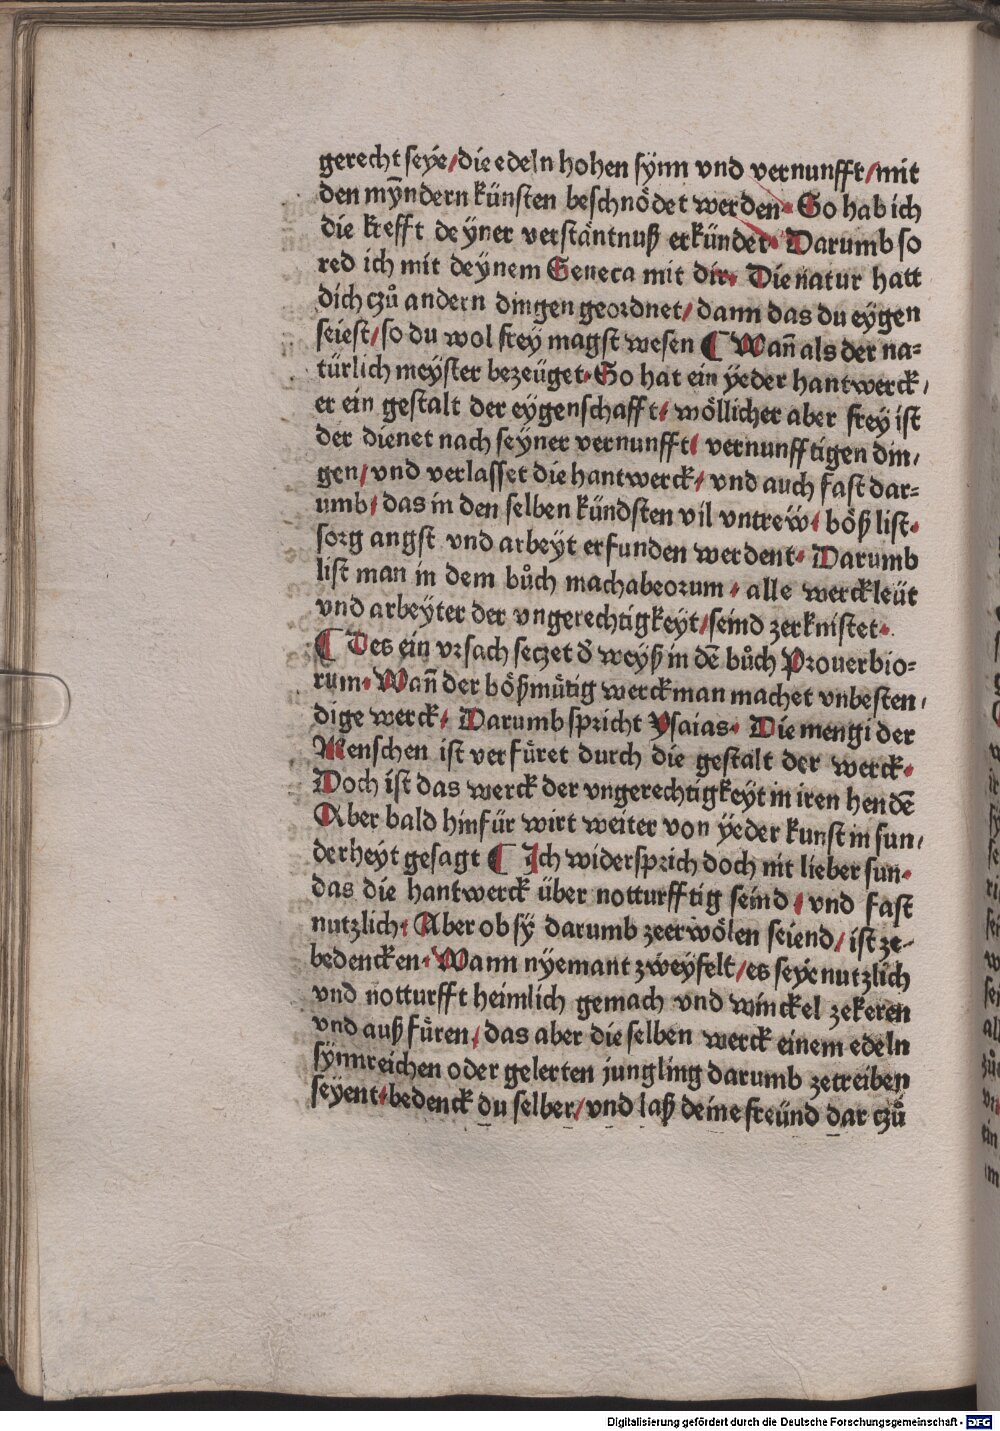 gerecht seye/die edeln hohen sÿnn vnd vernunfft/mit
den mÿndern künsten beschnödet werden. So hab ich
die krefft deyner verståntnuß erkündet. Darumb so
red ich mit deÿnem Seneca mit dir. Die natur hatt
dich czů andern dingen geordnet/ dann das du eÿgen
seiest/ so du wol freÿ magst wesen ¶ Wañ als der na⸗
türlich meÿster bezeüget. So hat ein ÿeder hantwerck/
er ein gestalt der eÿgenschafft/ wöllicher aber freÿ ist
der dienet nach seÿner vernunfft/ vernunfftigen din/
gen/ vnd verlasset die hantwerck/ vnd auch fast dar⸗
umb/ das in den selben kündsten vil vntreẅ/ böß list.
sorg angst vnd arbeÿt erfunden werdent. Darumb
list man in dem bůch machabeorum / alle werckleüt
vnd arbeÿter der vngerechtigkeyt/seind zerknistet.
¶ Des ein vrsach seczet d̕ weÿß in dē bůch Prouerbio⸗
rum. Wañ der bößmůtig werckman machet vnbesten/
dige werck/ Darumb spricht Ysaias. Die mengi der
Menschen ist verfüret durch die gestalt der werck.
Doch ist das werck der vngerechtigkeyt in iren hendē
Aber bald hinfür wirt weiter von ÿeder kunst in sun/
derheyt gesagt ¶ Ich widersprich doch nit lieber sun.
das die hantwerck über notturfftig seind / vnd fast
nutzlich. Aber ob sÿ darumb zeerwölen seiend/ ist ze⸗
bedencken. Wann nÿemant zweÿfelt/es seÿe nutzlich
vnd notturfft heimlich gemach vnd winckel zekeren
vnd außfüren/ das aber die selben werck einem edeln
sÿnnreichen oder gelerten jungling darumb zetreiben
seÿent/bedenck du selber/ vnd laß deine freünd dar czů
Digitalisierung gefördert durch die Deutsche Forschungsgemeinschaft - DFG